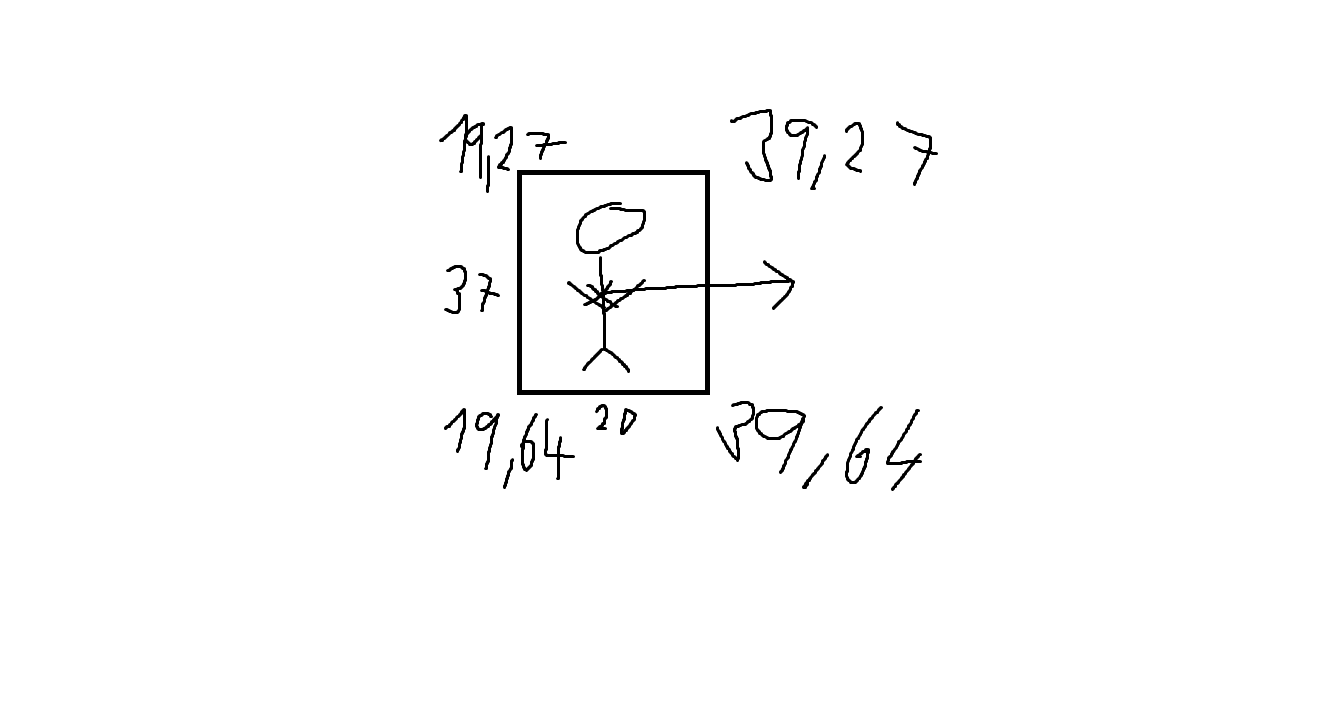 19,27 39,27
37
19,64 20 39,64